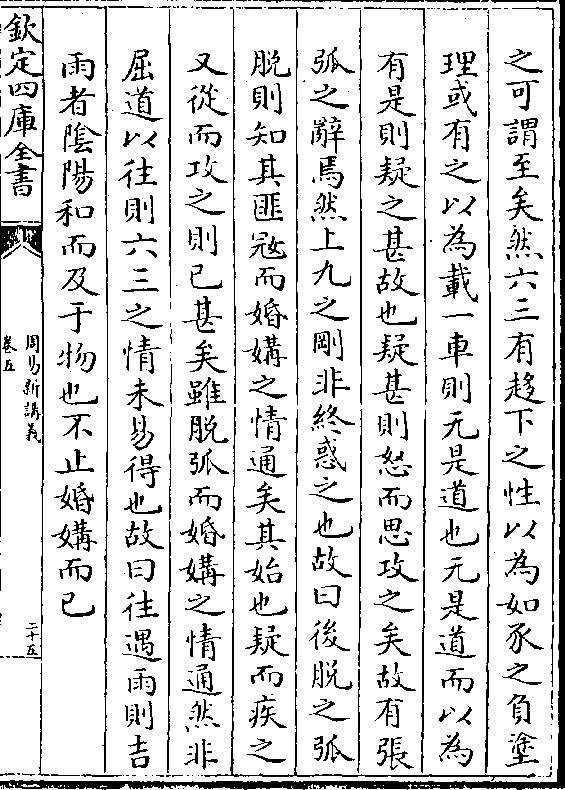 之可謂至矣然六三有趍下之性以為如豕之負塗
理或有之以為載一車則无是道也无是道而以為
有是則疑之甚故也疑甚則怒而思攻之矣故有張
弧之辭焉然上九之剛非終惑之也故曰後脱之弧
脱則知其匪寇而婚媾之情通矣其始也疑而疾之
又從而攻之則已甚矣雖脱弧而婚媾之情通然非
屈道以往則六三之情未易得也故曰往遇雨則吉
雨者陰陽和而及于物也不止婚媾而已
欽定四庫全書
周易新講義
卷五
二十五